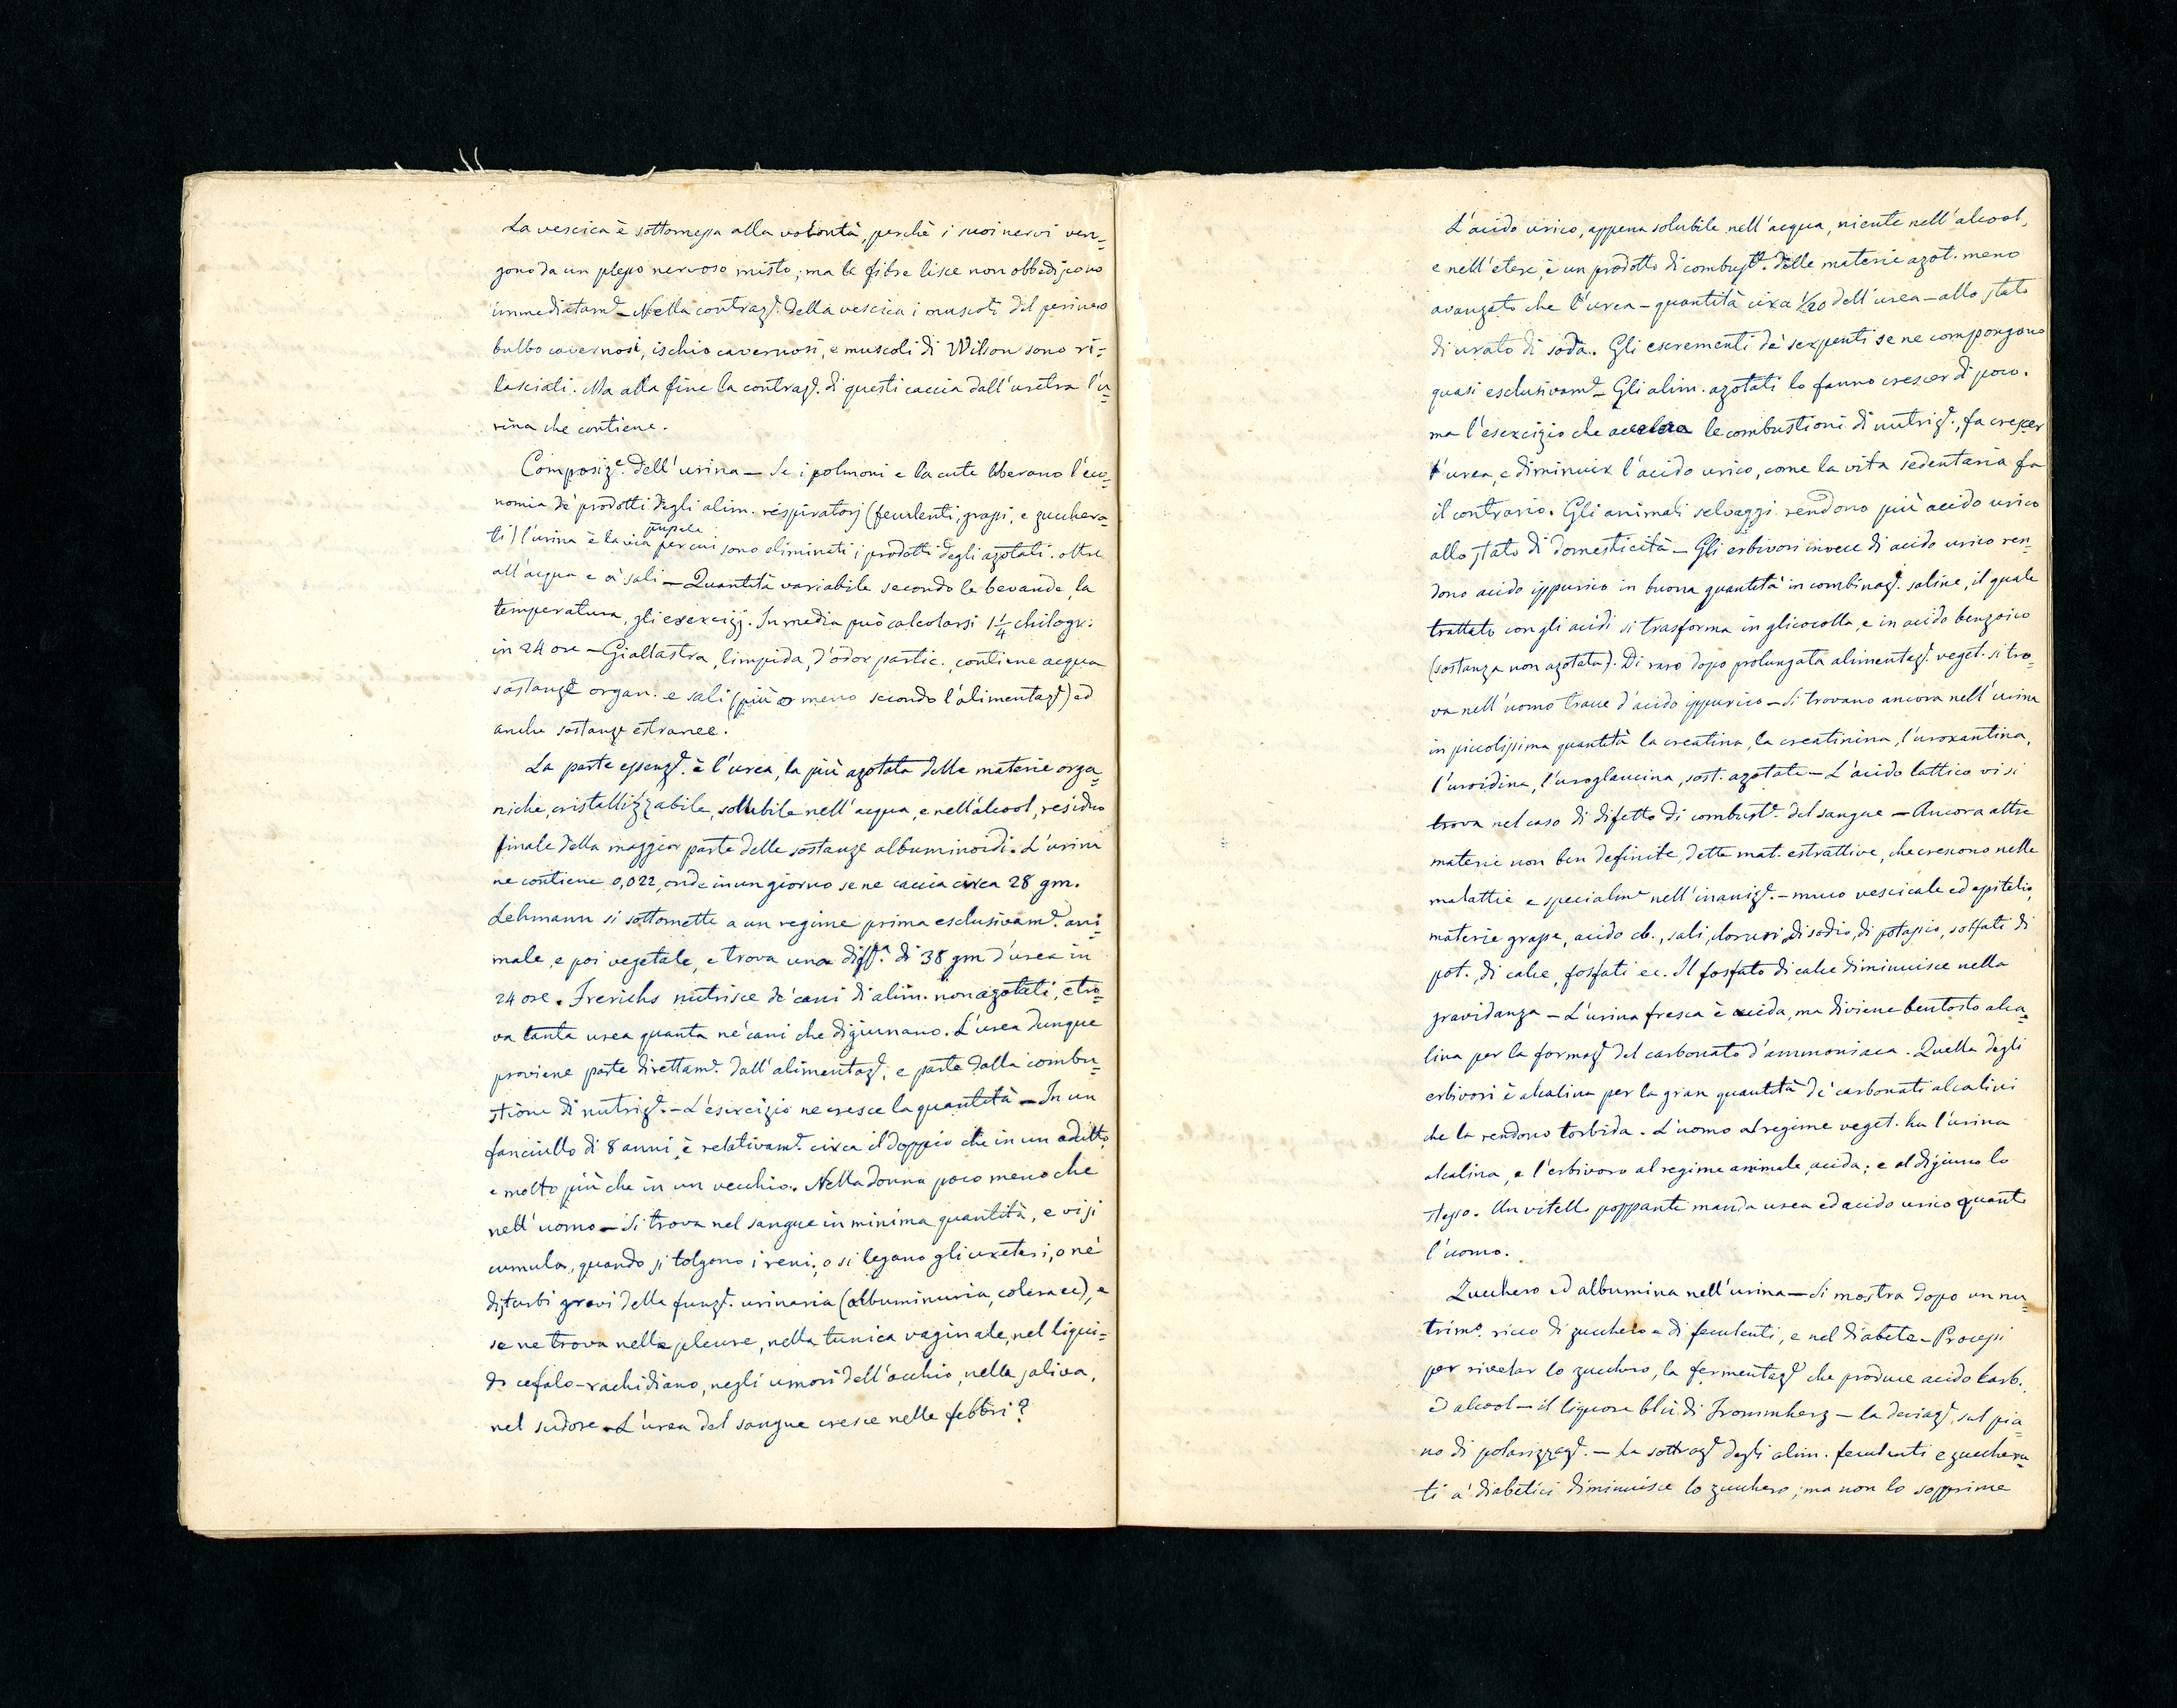 La vescica è sottomessa alla volontà, perchè i suoi nervi ven=
gono da un plesso nervoso misto; ma le fibre lisce non obbediscono
immediatamᵉ — Nella contrazᵉ. della vescica i muscoli del perineo
bulbo cavernosi, ischio cavernosi, e muscoli di Wilson sono ri=
lasciati. Ma alla fine la contrazᵉ. di questi caccia dall'uretra l'u=
rina che contiene.
Composizᵉ. dell'urina — Se i polmoni e la cute liberano l'eco=
nomia de' prodotti degli alim. respiratorj (feculenti, grassi, e zucchera=
ti) l'urina è la via per cui sono eliminati i prodotti degli azotati. oltre
all'acqua e a' sali — Quantità variabile secondo le bevande, la
temperatura, gli esercizj. In media può calcolarsi 1 1/4 chilogr:
in 24 ore — Giallastra, limpida, d'odor partic., contiene acqua
sostanze organ. e sali (più o meno secondo l'alimentazᵉ) ed
anche sostanze estranee.
La parte essenzᵉ. è l'urea, la più azotata delle materie orga=
niche, cristallizzabile, sollubile nell'acqua, e nell'alcool, residuo
finale della maggior parte delle sostanze albuminoidi. L'urina
ne contiene 0,022, onde in un giorno se ne caccia circa 28 gm.
Lehmann si sottomette a un regime prima esclusivamᵉ. ani=
male, e poi vegetale, e trova una diffᵃ. di 38 gm d'urea in
24 ore. Frerichs nutrisce de' cani di alim. non azotati, e tro=
va tanta urea quanta ne' cani che digiunano. L'urea dunque
proviene parte direttamᵉ. dall'alimentazᵉ, e parte dalla combu=
stione di nutrizᵉ. — L'esercizio ne cresce la quantità — In un
fanciullo di 8 anni, è relativamᵉ. circa il doppio che in un adulto,
e molto più che in un vecchio. Nella donna poco meno che
nell'uomo — Si trova nel sangue in minima quantità, e vi si
cumula, quando si tolgono i reni, o si legano gli ureteri, o ne'
disturbi gravi della funzᵉ. urinaria (albuminuria, colera ec), e
se ne trova nelle pleure, nella tunica vaginale, nel liqui=
do cefalo-rachidiano, negli umori dell'occhio, nella saliva,
nel sudore. L'urea del sangue cresce nelle febbri?
L'acido urico, appena solubile nell'acqua, niente nell'alcool,
e nell'etere, è un prodotto di combustᵉ. delle materie azot. meno
avanzato che l'urea — quantità circa 1/20 dell'urea — allo stato
di urato di soda. Gli escrementi de' serpenti se ne compongono
quasi esclusivamᵉ — Gli alim. azotati lo fanno crescer di poco.
ma l'esercizio che accelera le combustioni di nutrizᵉ., fa crescer
l'urea, e diminuir l'acido urico, come la vita sedentaria fa
il contrario. Gli animali selvaggi rendono più acido urico
allo stato di domesticità — Gli erbivori invece di acido urico ren=
dono acido ippurico in buona quantità in combinazᵉ. saline, il quale
trattato con gli acidi si trasforma in glicocolla, e in acido benzoico
(sostanza non azotata). Di raro dopo prolungata alimentazᵉ. veget. si tro=
va nell'uomo tracce d'acido ippurico — Si trovano ancora nell'urina
in piccolissima quantità la creatina, la creatinina, l'uroxantina,
l'uroidina, l'uroglaucina, sost. azotate — L'acido lattico vi si
trova nel caso di difetto di combustᵉ. del sangue — Ancora altre
materie non ben definite, dette mat. estrattive, che crescono nelle
malattie e specialmᵉ nell'inanizᵉ. — muco vescicale ed epitelio,
materie grasse, acido cb., sali, cloruri di sodio, di potassio, solfati di
pot. di calce, fosfati ec. Il fosfato di calce diminuisce nella
gravidanza — L'urina fresca è acida, ma diviene bentosto alca=
lina per la formazᵉ del carbonato d'ammoniaca. Quella degli
erbivori è alcalina per la gran quantità de' carbonati alcalini
che la rendono torbida. L'uomo al regime veget. ha l'urina
alcalina, e l'erbivoro al regime animale, acida; e al digiuno lo
stesso. Un vitello poppante manda urea ed acido urico quanto
l'uomo.
Zucchero ed albumina nell'urina — Si mostra dopo un nu=
trimᵒ. ricco di zucchero e di feculenti, e nel diabete — Processi
per rivelar lo zucchero, la fermentazᵉ che produce acido carb.,
ed alcool — il liquore blù di Frommherz — la deviazᵉ. sul pia=
no di polarizzazᵉ. — La sottrazᵉ degli alim. feculenti e zucchera=
ti a' diabetici diminuisce lo zucchero; ma non lo sopprime